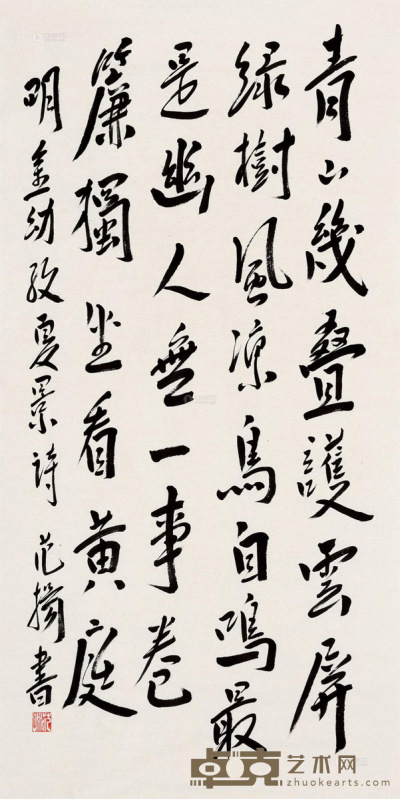 青山幾疊護雲屏
綠樹風涼鳥自鳴最
是幽人無一事卷
簾獨坐看黃庭
明金幼孜夏景詩 范揚書
卓克艺术网
zhuokearts.com